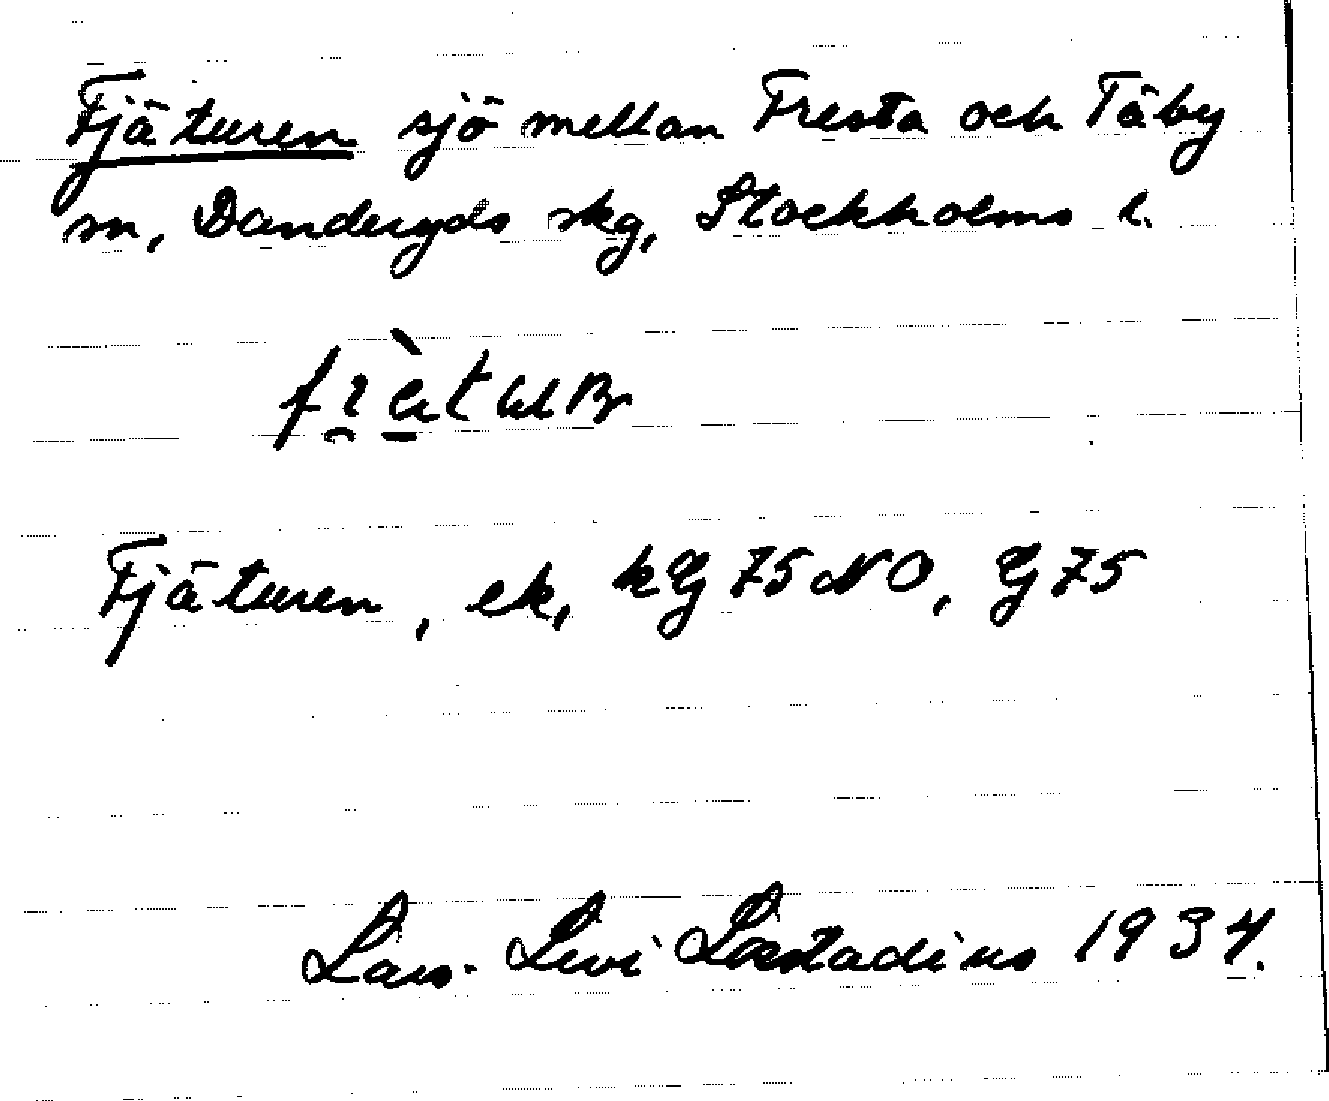 Fjäturen sjö mellan Fresta och Täby
sn, Danderyds skg, Stockholms l.
Fjäturen, ek, kg 75 NO, G 75
Lars-Levi Læstadius 1934.